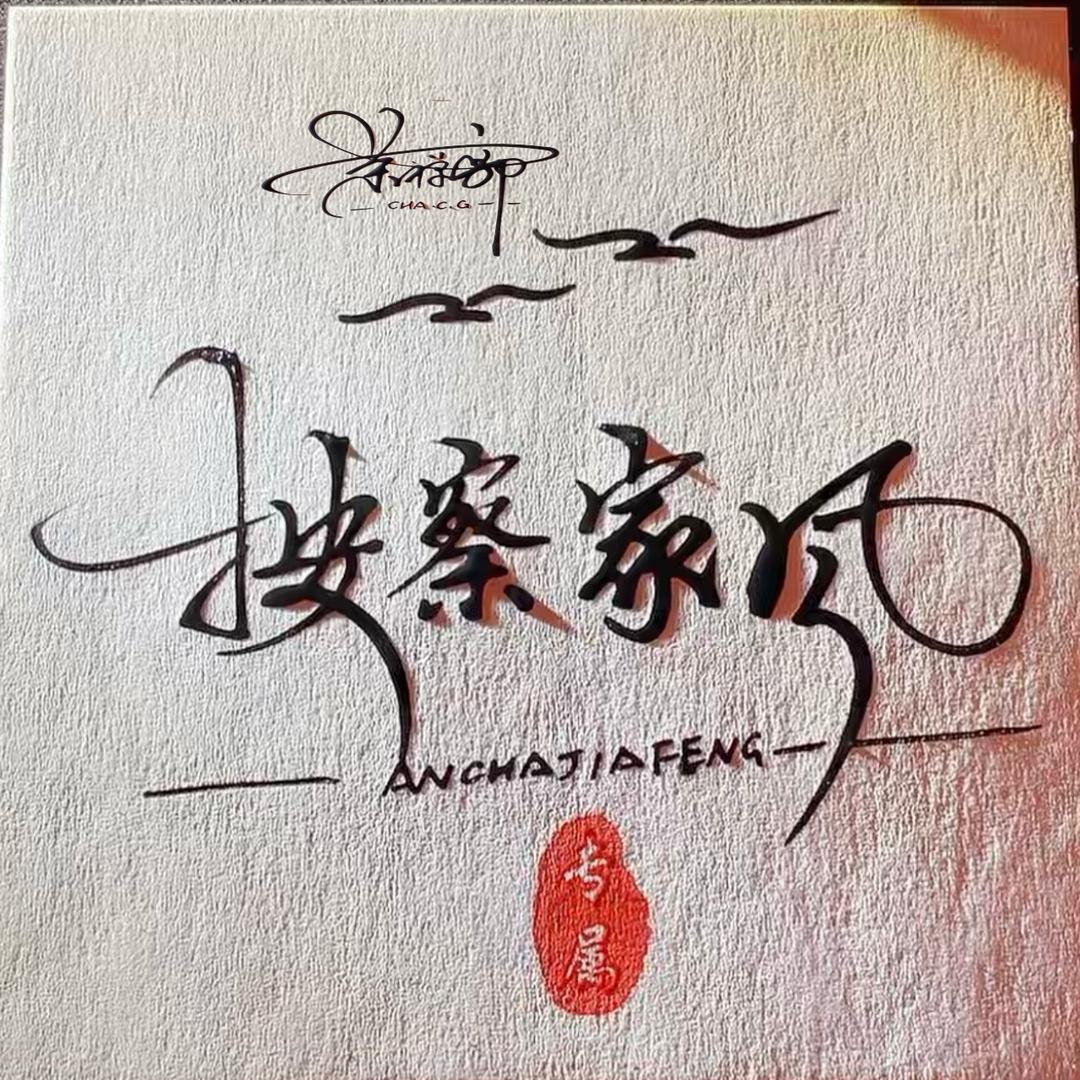 CHA.C.G
按察家风
ANCHAJIAFENG
专属